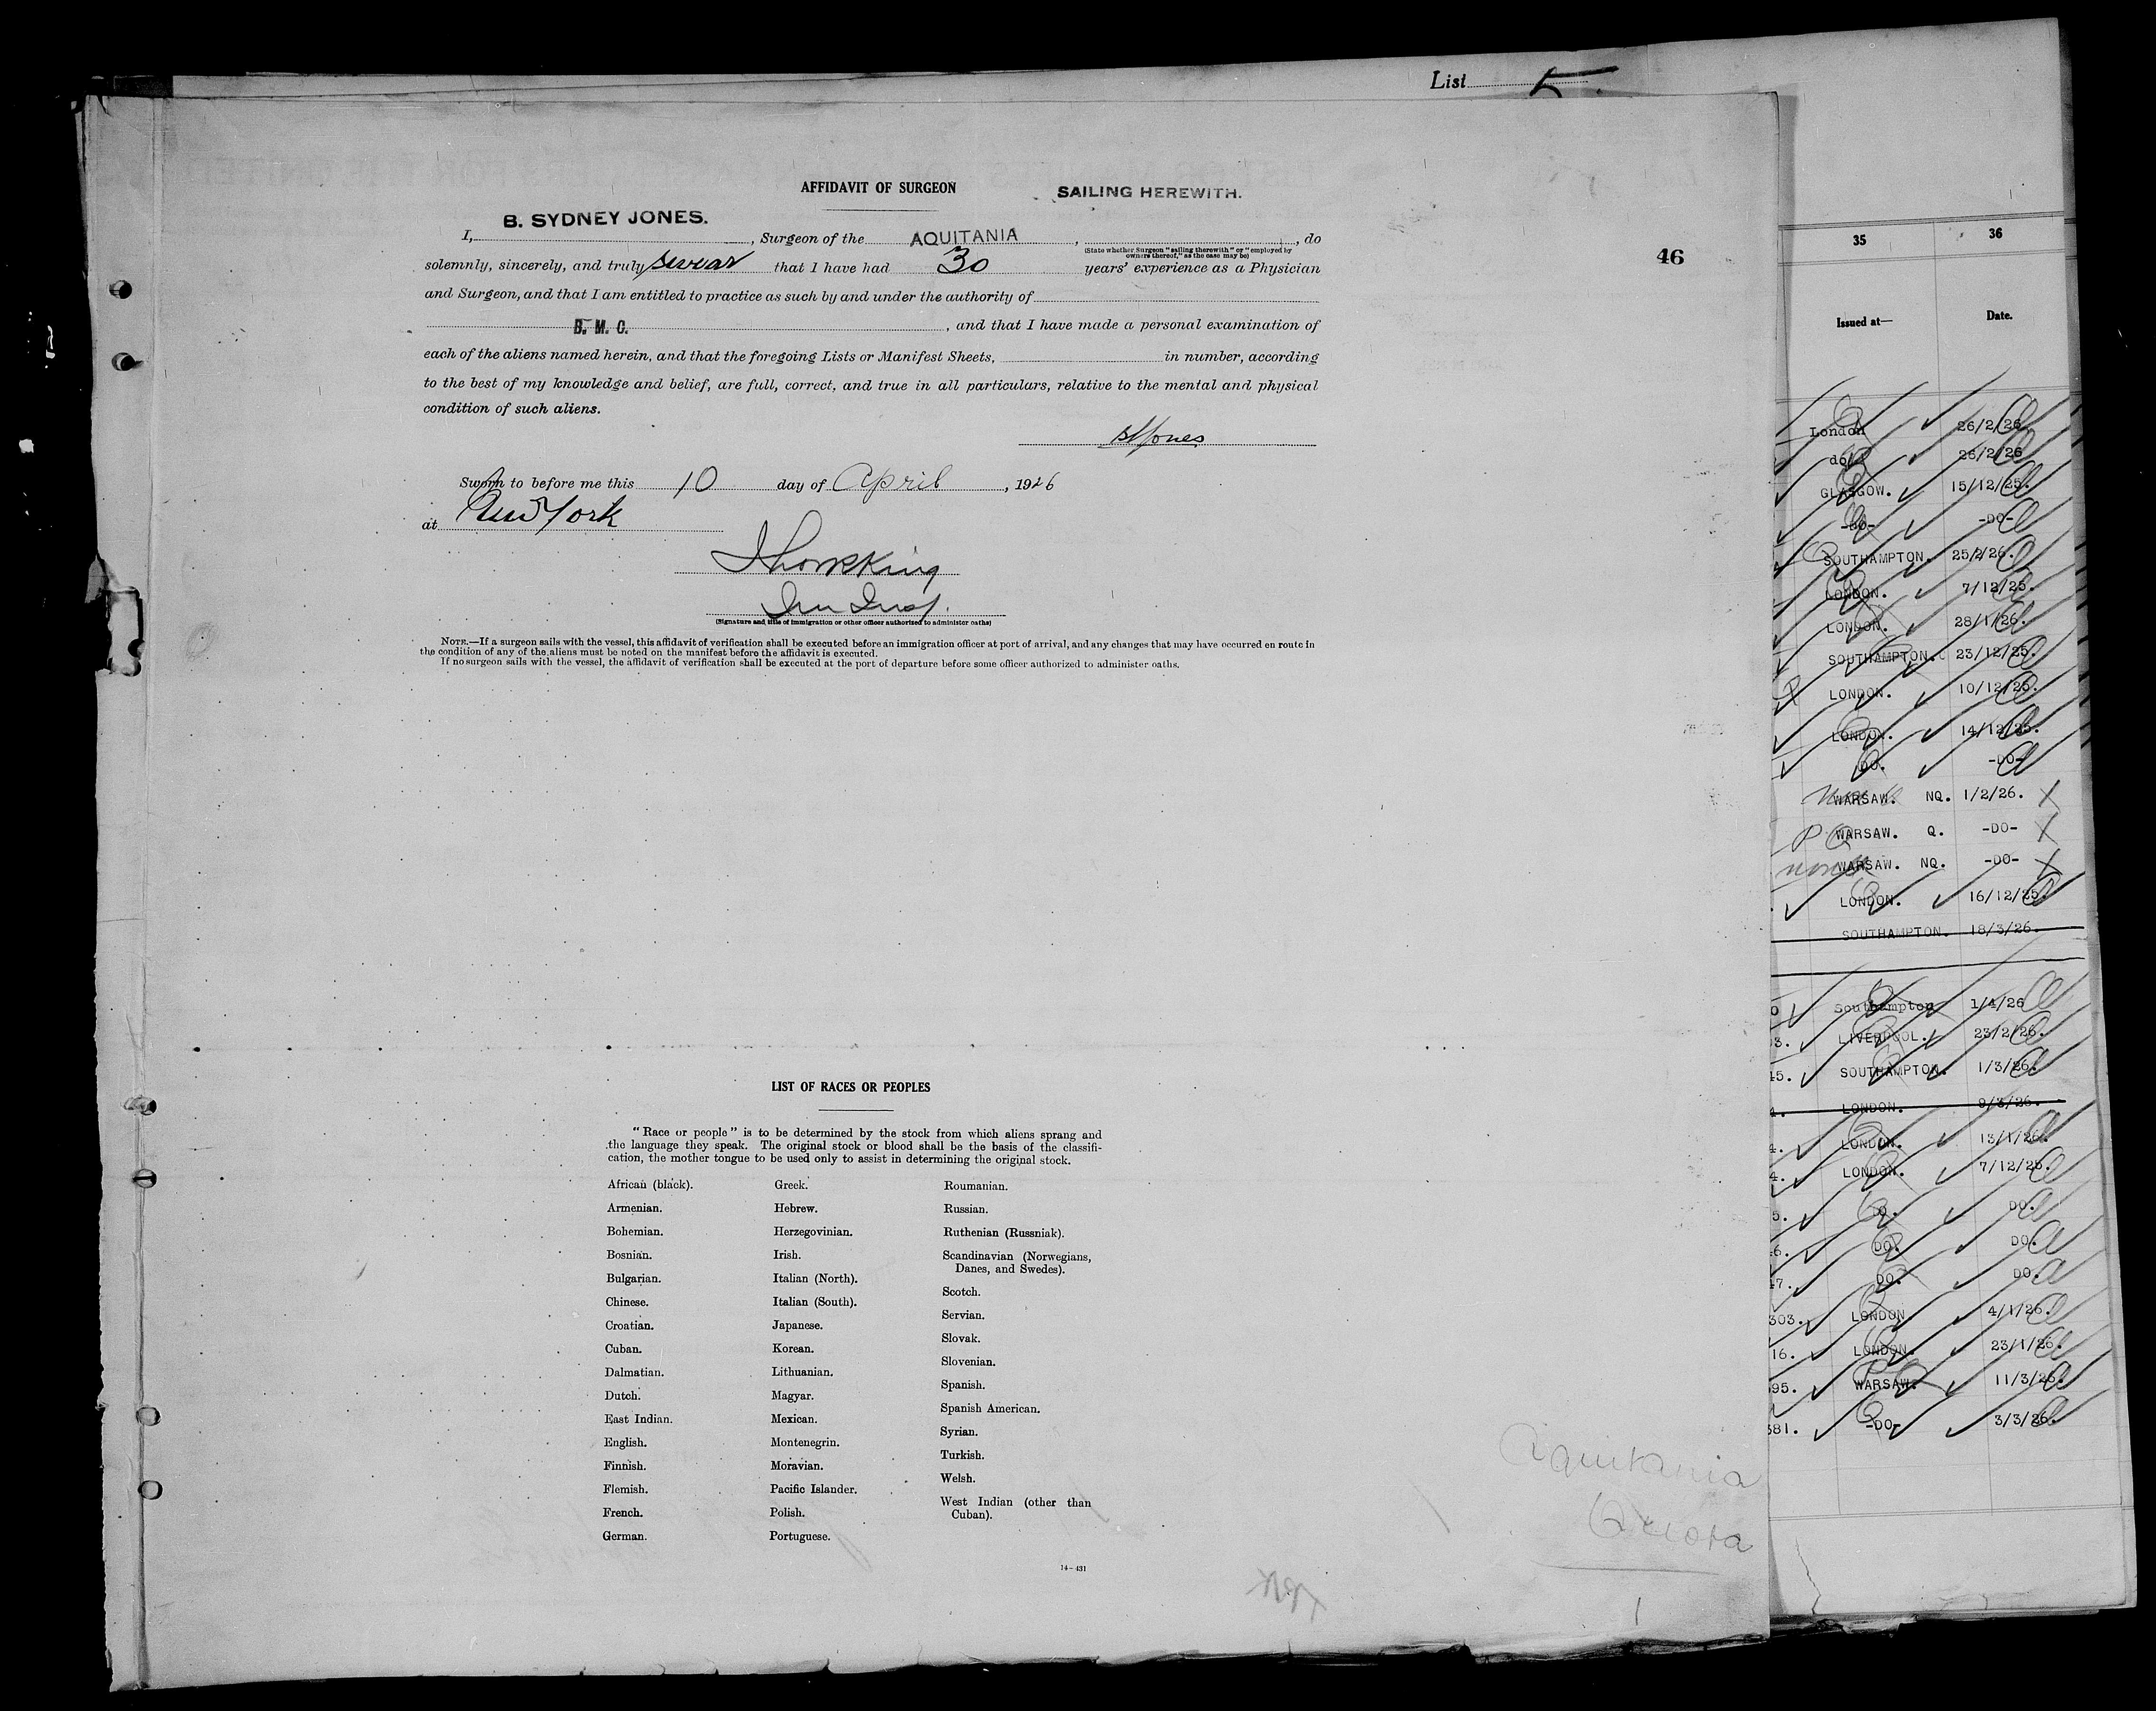 List 5.
AFFIDAVIT OF SURGEON
SAILING HEREWITH.
B. SYDNEY JONES.
I, , Surgeon of the AQUITANIA , , do
(State whether Surgeon "sailing therewith" or "employed by
owners thereof," as the case may be)
solemnly, sincerely, and truly swear that I have had 30 years' experience as a Physician
46
and Surgeon, and that I am entitled to practice as such by and under the authority of
B. M. C. , and that I have made a personal examination of
each of the aliens named herein, and that the foregoing Lists or Manifest Sheets, in number, according
to the best of my knowledge and belief, are full, correct, and true in all particulars, relative to the mental and physical
condition of such aliens.
Jones
Sworn to before me this 10 day of April , 1926
at New York
Imm Insp.
(Signature and title of immigration or other officer authorized to administer oaths)
NOTE.—If a surgeon sails with the vessel, this affidavit of verification shall be executed before an immigration officer at port of arrival, and any changes that may have occurred en route in
the condition of any of the aliens must be noted on the manifest before the affidavit is executed.
If no surgeon sails with the vessel, the affidavit of verification shall be executed at the port of departure before some officer authorized to administer oaths.
LIST OF RACES OR PEOPLES
"Race or people" is to be determined by the stock from which aliens sprang and
the language they speak. The original stock or blood shall be the basis of the classifi-
cation, the mother tongue to be used only to assist in determining the original stock.
African (black).
Armenian.
Bohemian.
Bosnian.
Bulgarian.
Chinese.
Croatian.
Cuban.
Dalmatian.
Dutch.
East Indian.
English.
Finnish.
Flemish.
French.
German.
Greek.
Hebrew.
Herzegovinian.
Irish.
Italian (North).
Italian (South).
Japanese.
Korean.
Lithuanian.
Magyar.
Mexican.
Montenegrin.
Moravian.
Pacific Islander.
Polish.
Portuguese.
Roumanian.
Russian.
Ruthenian (Russniak).
Scandinavian (Norwegians,
Danes, and Swedes).
Scotch.
Servian.
Slovak.
Slovenian.
Spanish.
Spanish American.
Syrian.
Turkish.
Welsh.
West Indian (other than
Cuban).
14-431
Aquitania
Quota
1
35 36
Issued at— Date.
London 26/2/26
do 26/2/26
GLASGOW. 15/12/25.
-DO- -DO-
SOUTHAMPTON. 25/2/26.
LONDON. 7/12/25.
LONDON. 28/1/26.
SOUTHAMPTON. 23/12/25.
LONDON. 10/12/25.
LONDON. 14/12/25.
DO. -DO-
WARSAW. NQ. 1/2/26. X
WARSAW. Q. -DO- X
WARSAW. NQ. -DO- X
LONDON. 16/12/25.
SOUTHAMPTON. 18/3/26.
0 Southampton 1/4/26
3. LIVERPOOL. 23/2/26.
45. SOUTHAMPTON. 1/3/26.
LONDON. 9/3/26.
4. LONDON. 13/1/26.
4. LONDON. 7/12/25.
5. DO.
6. DO. DO.
47. DO. DO.
303. LONDON 4/1/26.
16. LONDON. 23/1/26.
95. WARSAW. 11/3/26.
381. -DO- 3/3/26.